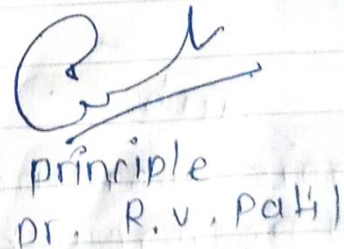 principle
Dr. R. V. Patil